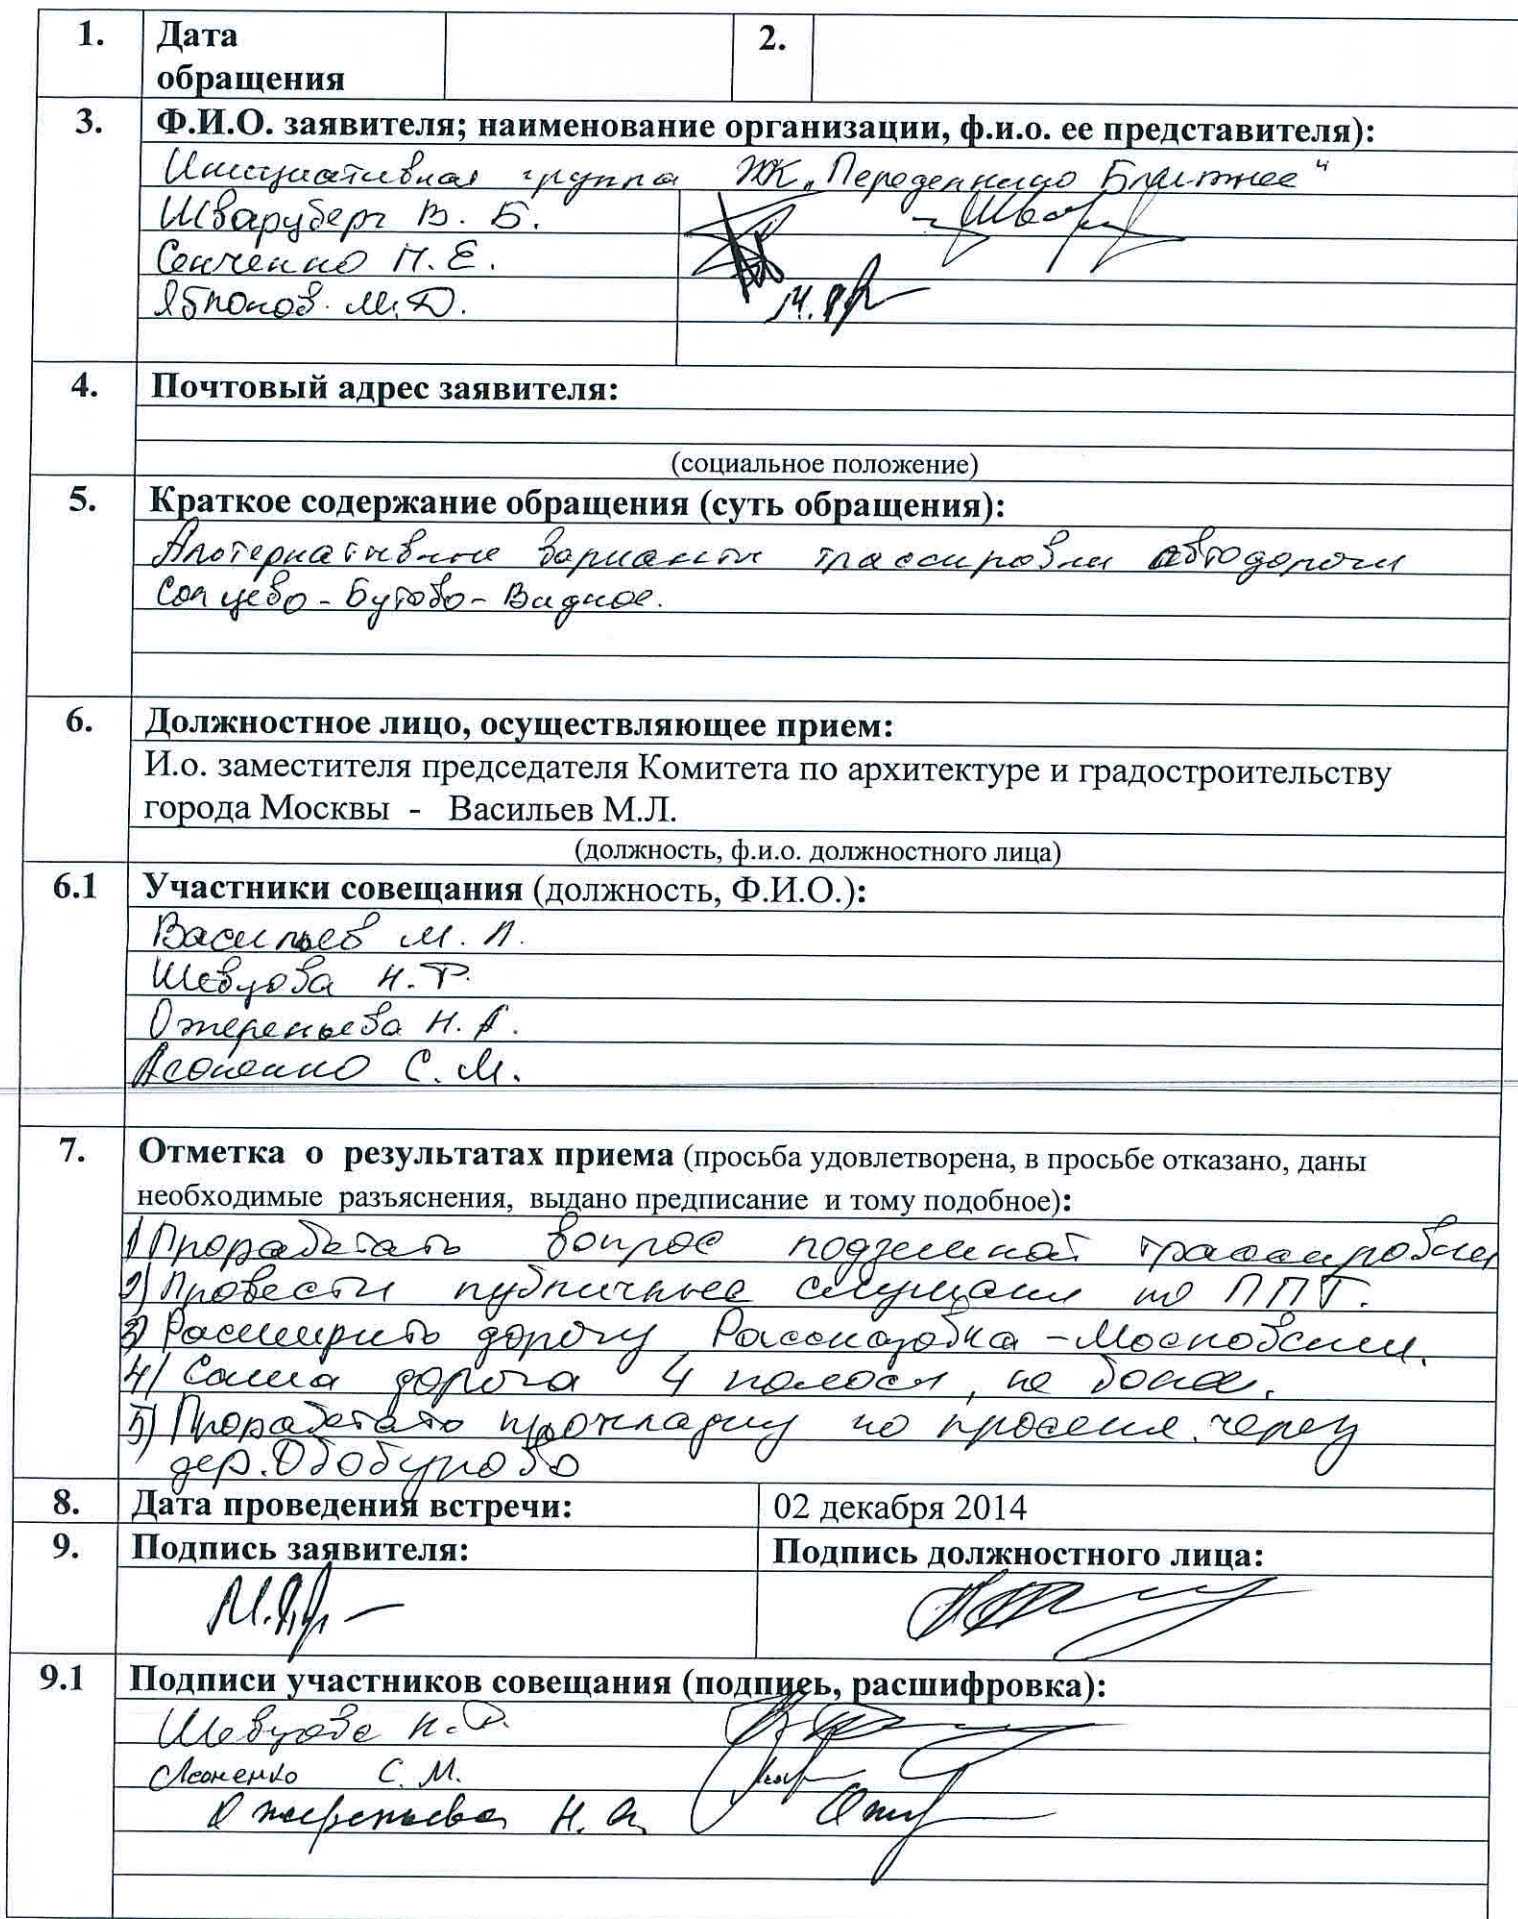 1. Дата обращения 2.
3. Ф.И.О. заявителя; наименование организации, ф.и.о. ее представителя):
Инициативная группа ЖК „Переделкино Ближнее"
Шварцберг В. Б.
Сенченко Н. Е.
Яблоков М.Д.
4. Почтовый адрес заявителя:
(социальное положение)
5. Краткое содержание обращения (суть обращения):
Альтернативные варианты трассировки автодороги
Солнцево-Бутово-Видное.
6. Должностное лицо, осуществляющее прием:
И.о. заместителя председателя Комитета по архитектуре и градостроительству
города Москвы - Васильев М.Л.
(должность, ф.и.о. должностного лица)
6.1 Участники совещания (должность, Ф.И.О.):
Васильев М. Л.
Шевцова Н.
Ожерельева Н. А.
С. М.
7. Отметка о результатах приема (просьба удовлетворена, в просьбе отказано, даны
необходимые разъяснения, выдано предписание и тому подобное):
1) Проработать вопрос подземной трассировки
2) Провести публичные слушания по ППТ.
3) Расширить дорогу Рассказовка - Московский.
4) Сама дорога 4 полосы, не более.
5) Проработать прокладку по просеке. через
дер.
8. Дата проведения встречи: 02 декабря 2014
9. Подпись заявителя: Подпись должностного лица:
9.1 Подписи участников совещания (подпись, расшифровка):
Шевцова Н.
С. М.
Ожерельева Н. А.